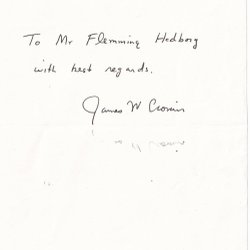 To Mr Flemming Hedborg
with best regards.
James W Cronin